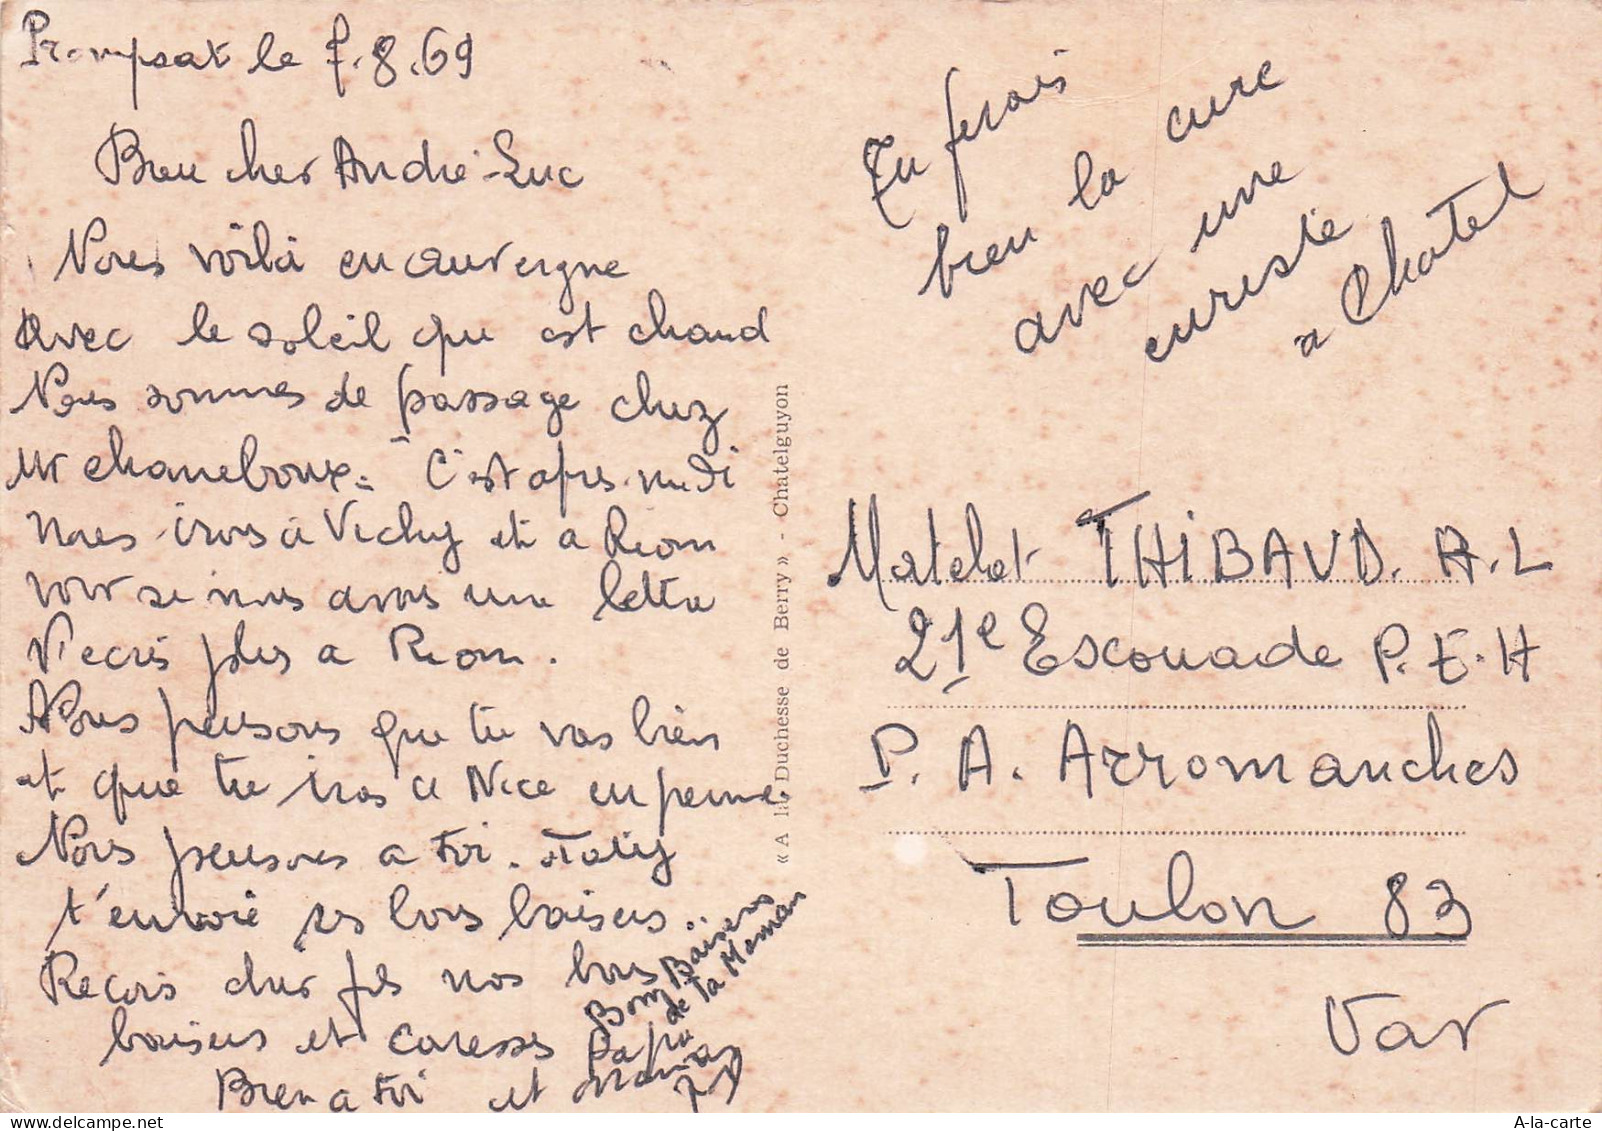 Prompsat le 7.8.69
Bien cher André-Luc
Nous voilà en auvergne
avec le soleil qui est chaud
Nous sommes de passage chez
Mr Chaneboux. C'est apres-midi
nous irons à Vichy et a Riom
voir si nous avons une lettre
N'ecris plus a Riom.
Nous pensons que tu vas bien
et que tu iras a Nice en perme.
Nous pensons a toi.
t'envoie ses bons baisers..
Recois cher fils nos bons
baisers et caresses
Bien a toi et
Bons Baisers
de ta Maman
Papa
Maman
« A la Duchesse de Berry » - Chatelguyon
Tu ferais
bien la cure
avec une
curiste
a Chatel
Matelot THIBAUD. A.L
21e Escouade P.E.H
P. A. Arromanches
Toulon 83
Var
A-la-carte